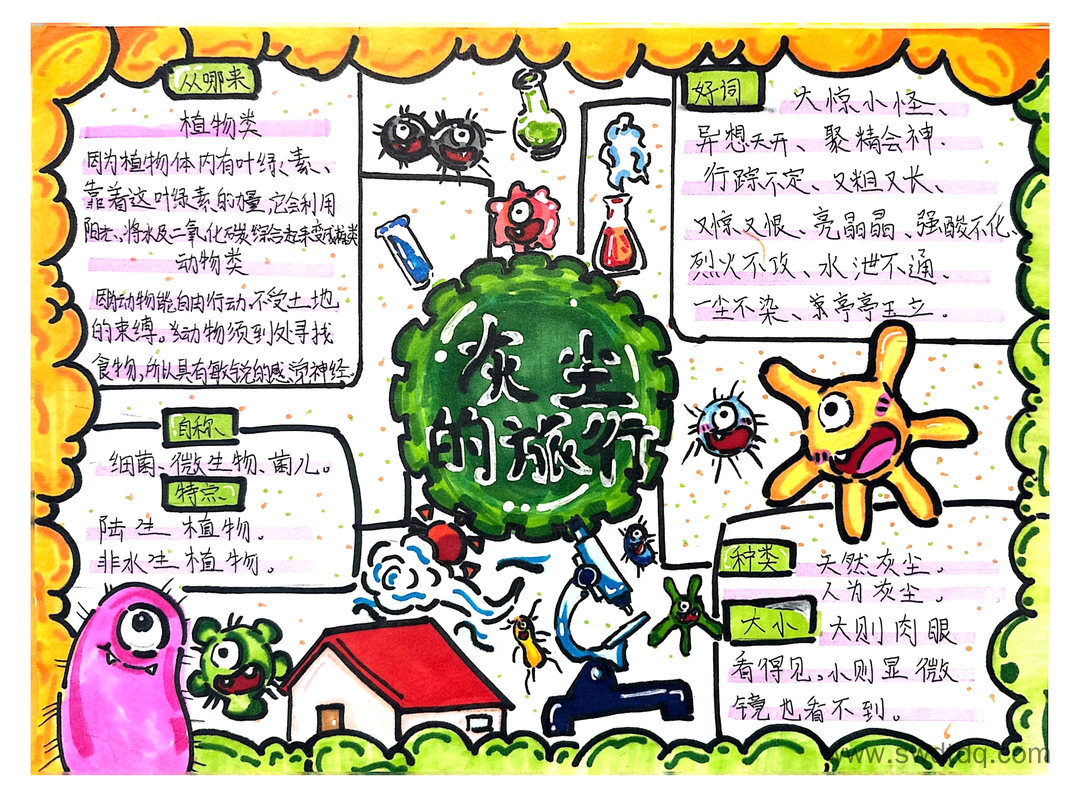 从哪来
植物类
因为植物体内有叶绿素、
靠着这叶绿素的力量,它会利用
阳光、将水及二氧化碳综合起来变成糖类
动物类
因为动物能自由行动,不受土地
的束缚。动物须到处寻找
食物,所以具有敏锐的感觉神经.
自称
细菌、微生物、菌儿。
特点
陆生植物。
非水生植物。
灰尘
的旅行
好词
大惊小怪、
异想天开、聚精会神.
行踪不定、又粗又长、
又惊又恨、亮晶晶、强酸不化、
烈火不攻、水泄不通、
一尘不染、亭亭玉立.
种类
天然灰尘。
人为灰尘。
大小
大则肉眼
看得见,小则显微
镜也看不到。
www.swdtdq.com